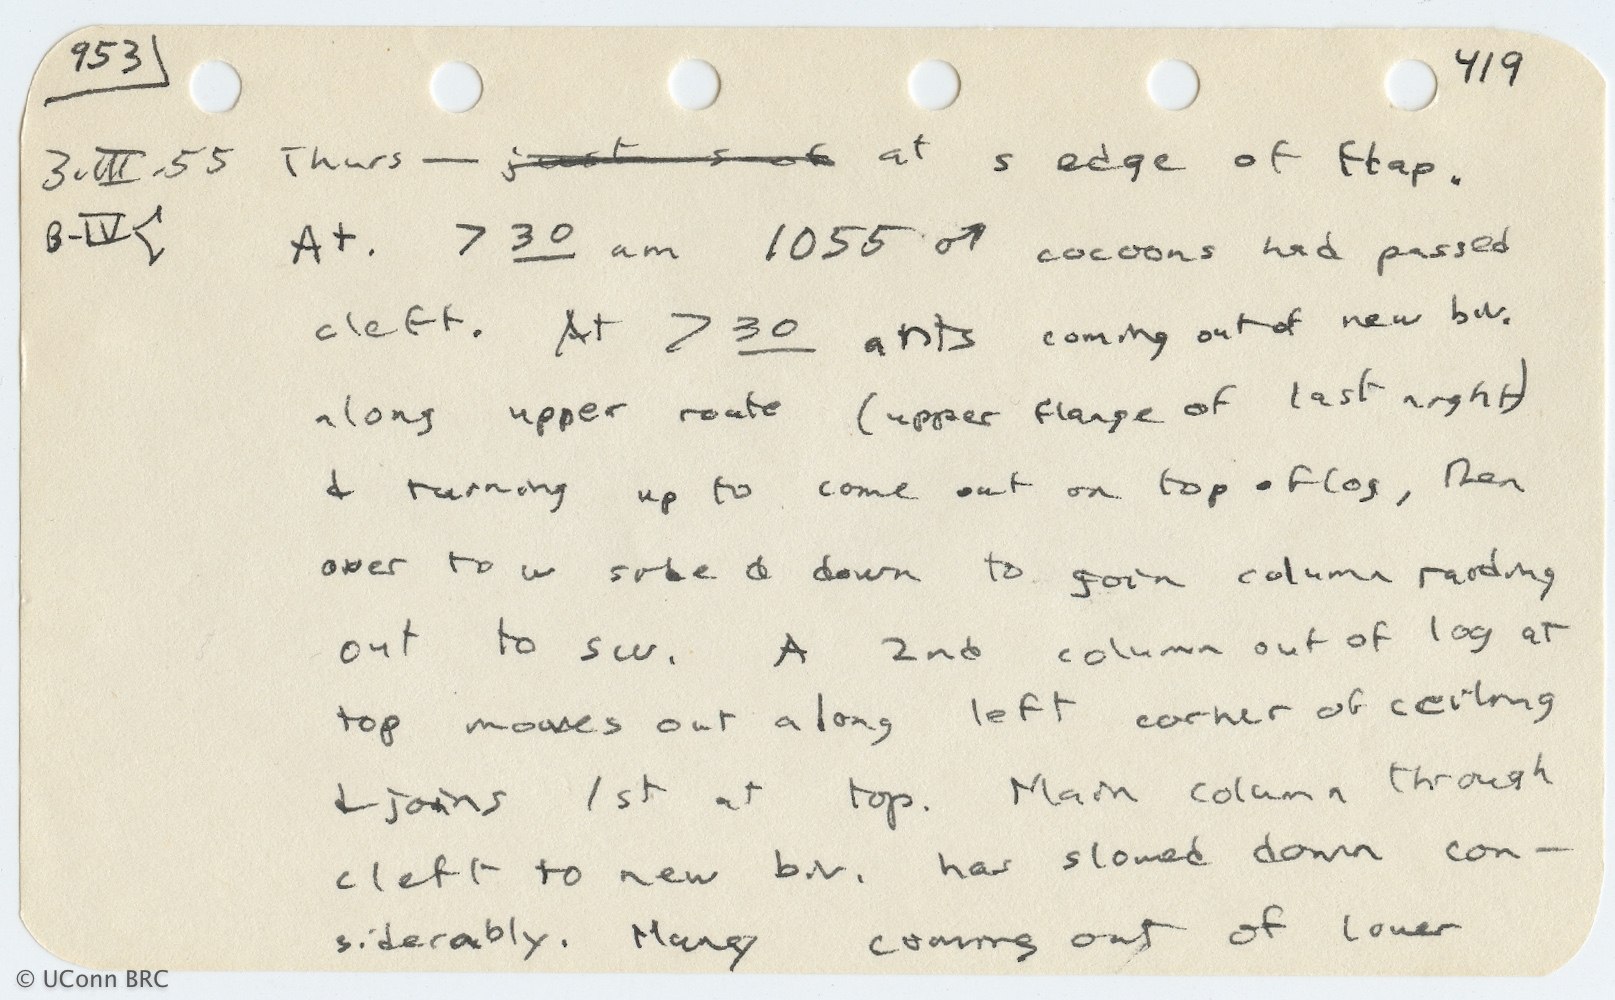 953 419
3.III.55 Thurs — just s of at s edge of flap.
B-IV At. 730 am 1055 ♂ cocoons had passed
cleft. At 730 ants coming out of new biv.
along upper route (upper flange of last night)
& running up to come out on top of log, then
over to w side & down to join column raiding
out to sw. A 2nd column out of log at
top moves out along left corner of ceiling
& joins 1st at top. Main column through
cleft to new biv. has slowed down con-
siderably. Many coming out of lower
© UConn BRC